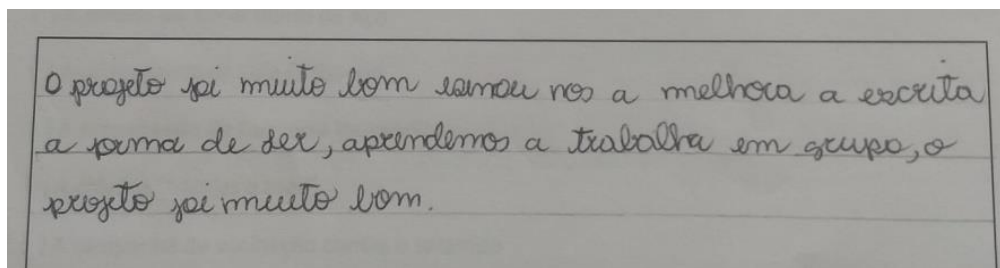 O projeto foi muito bom esinou nos a melhora a escrita
a forma de ser, aprendemos a trabalha em grupo, o
projeto foi muito bom.